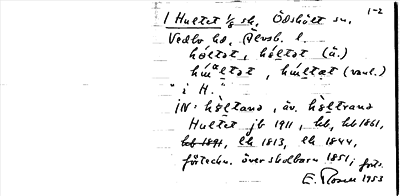 1-2
1 Hultet 1/8 sk, Ödskölt sn.
Vedbo hd, Älvsb. l.
hóltət, hóltət (ä.)
hultət, hultæt (vanl.)
"i H."
iN: höltand, äv. höltrand
Hultet jb 1911, kb, kb 1861,
kb 1891, lk 1813, lk 1844,
förteckn. över skolbarn 1851, forts.
E. Rosen 1953